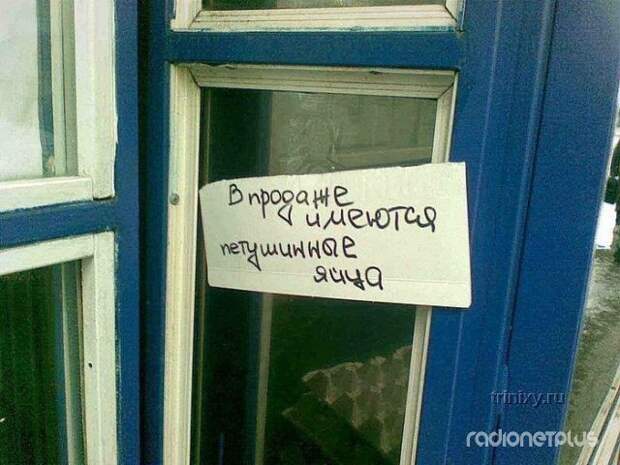 В продаже
имеются
петушинные
яйца
trinixy.ru
radionetplus